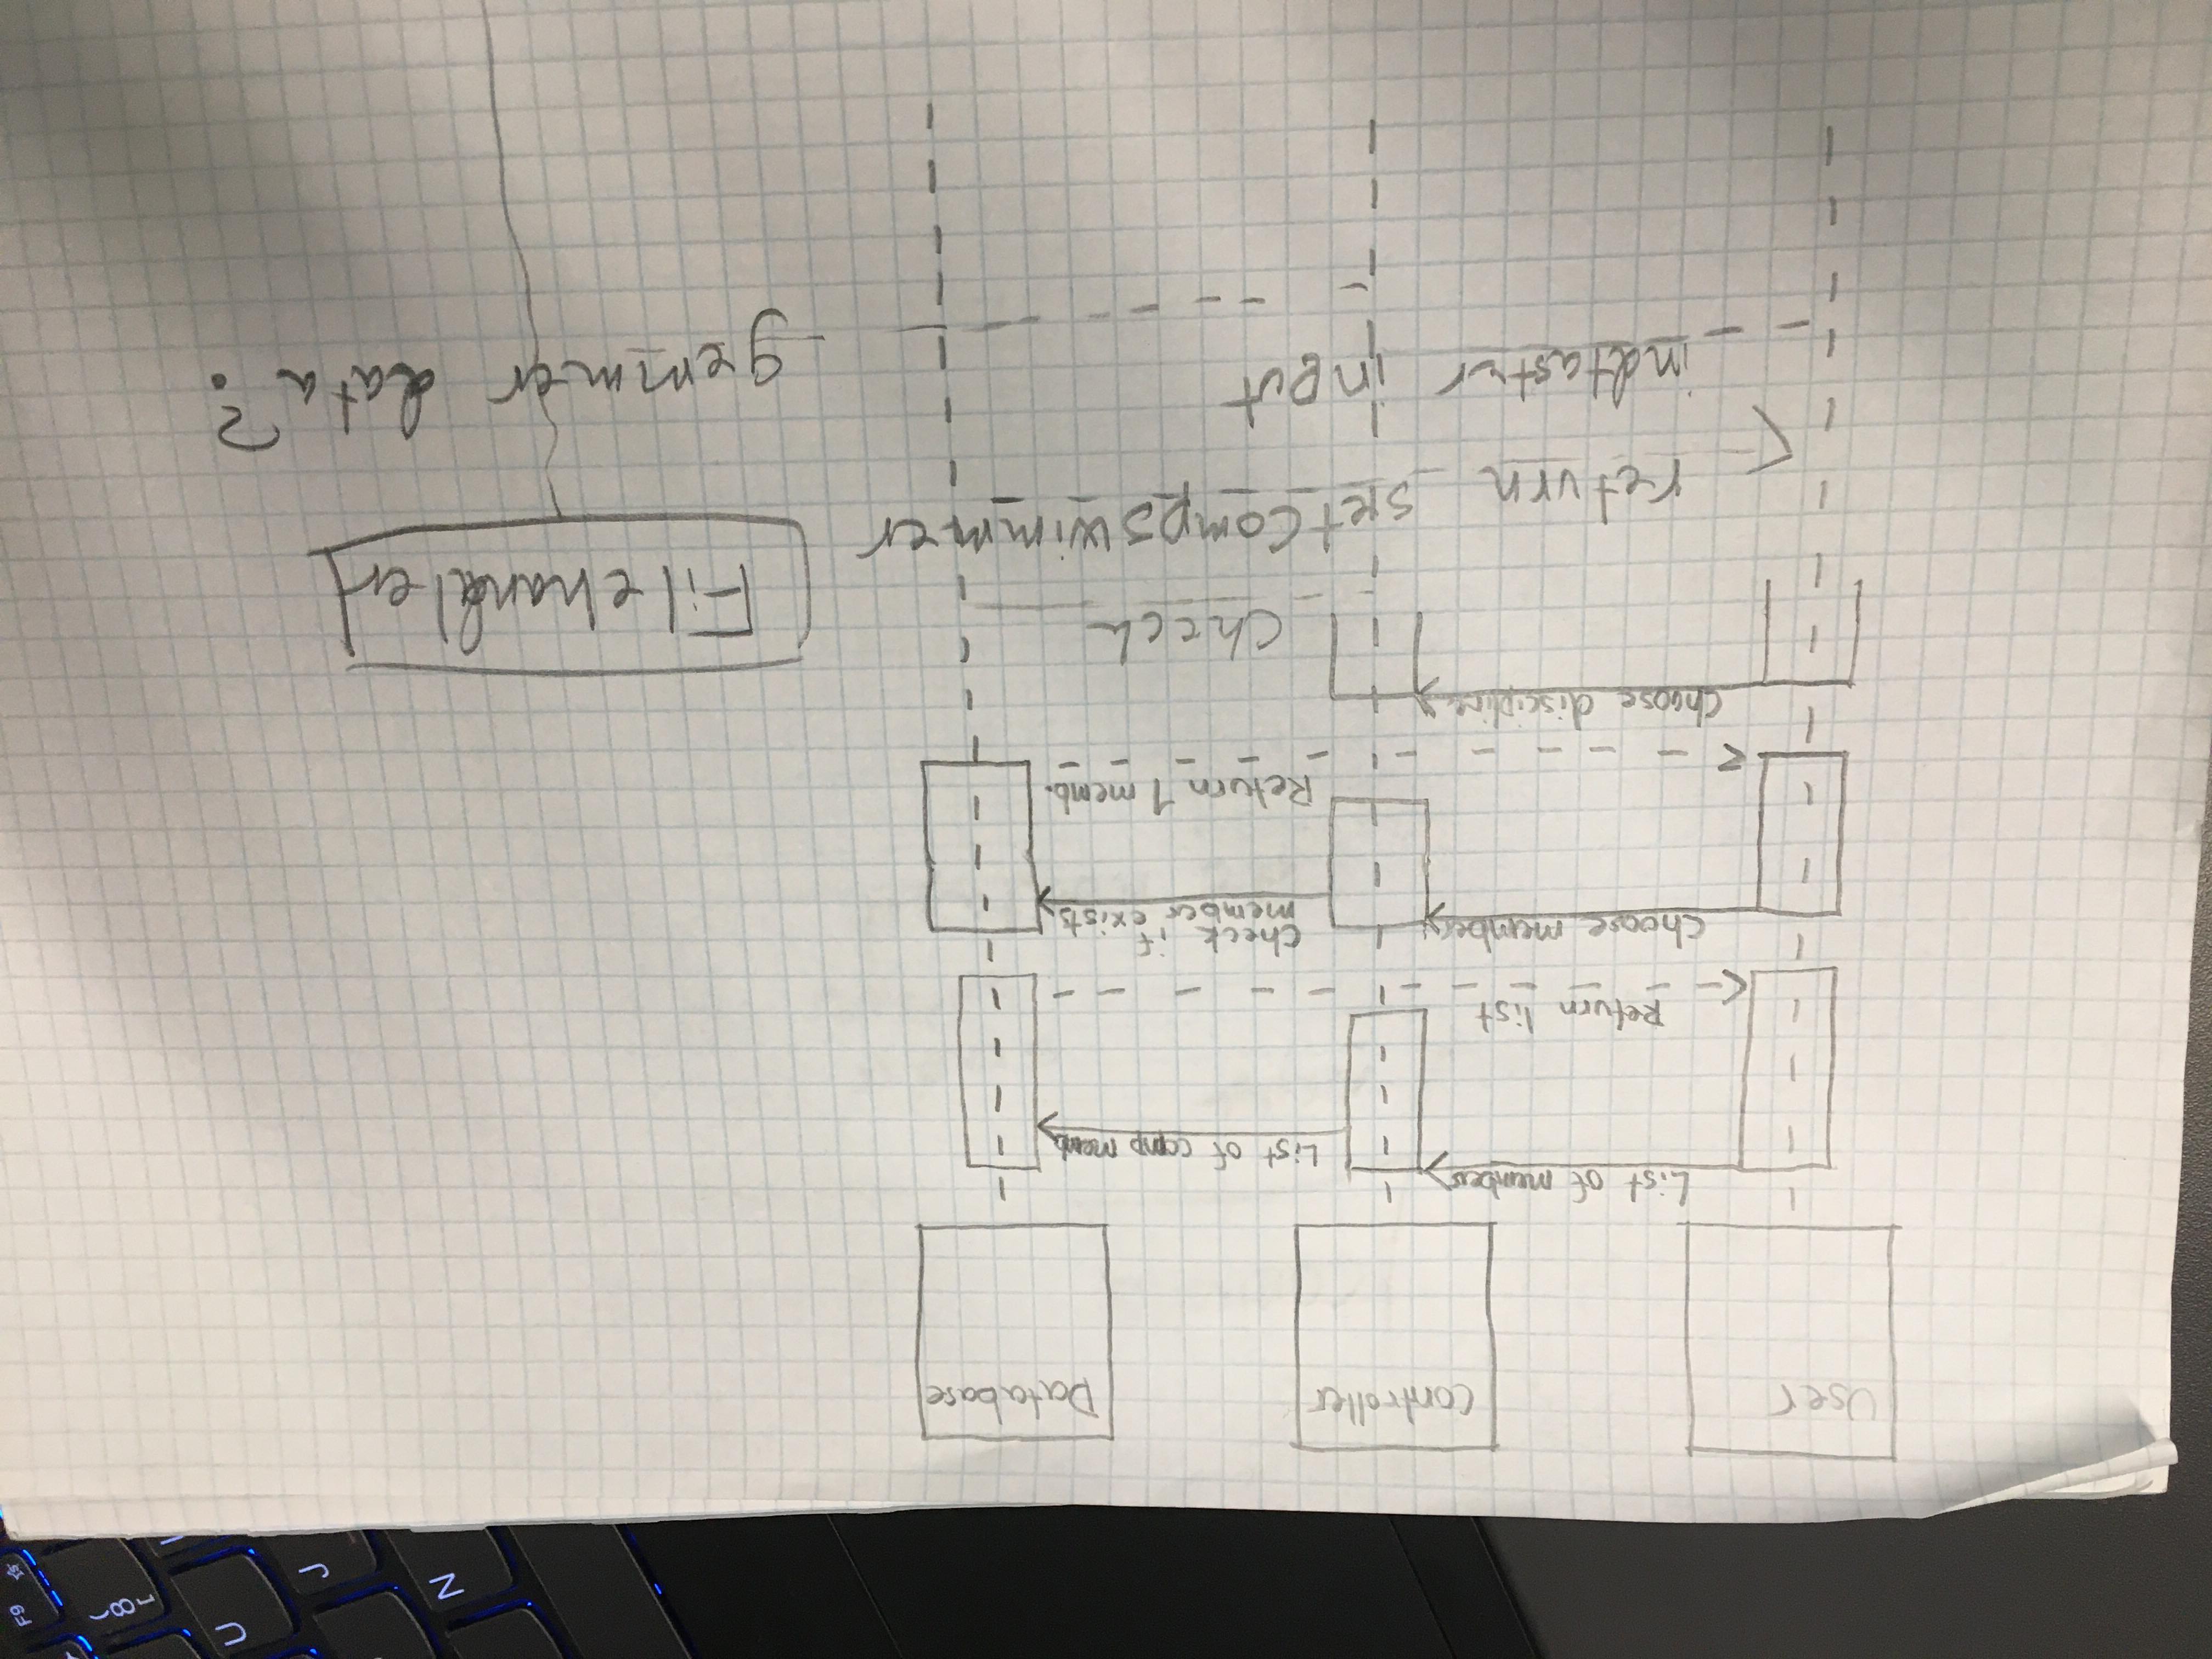 User
Controller
Database
List of members
List of comp memb
Return list
Choose member
Check if
member exists
Return 1 memb.
Choose discipline
Check
Filehandler
return setCompswimmer
indtaster input
gemmer data?
N
J
U
8
F9